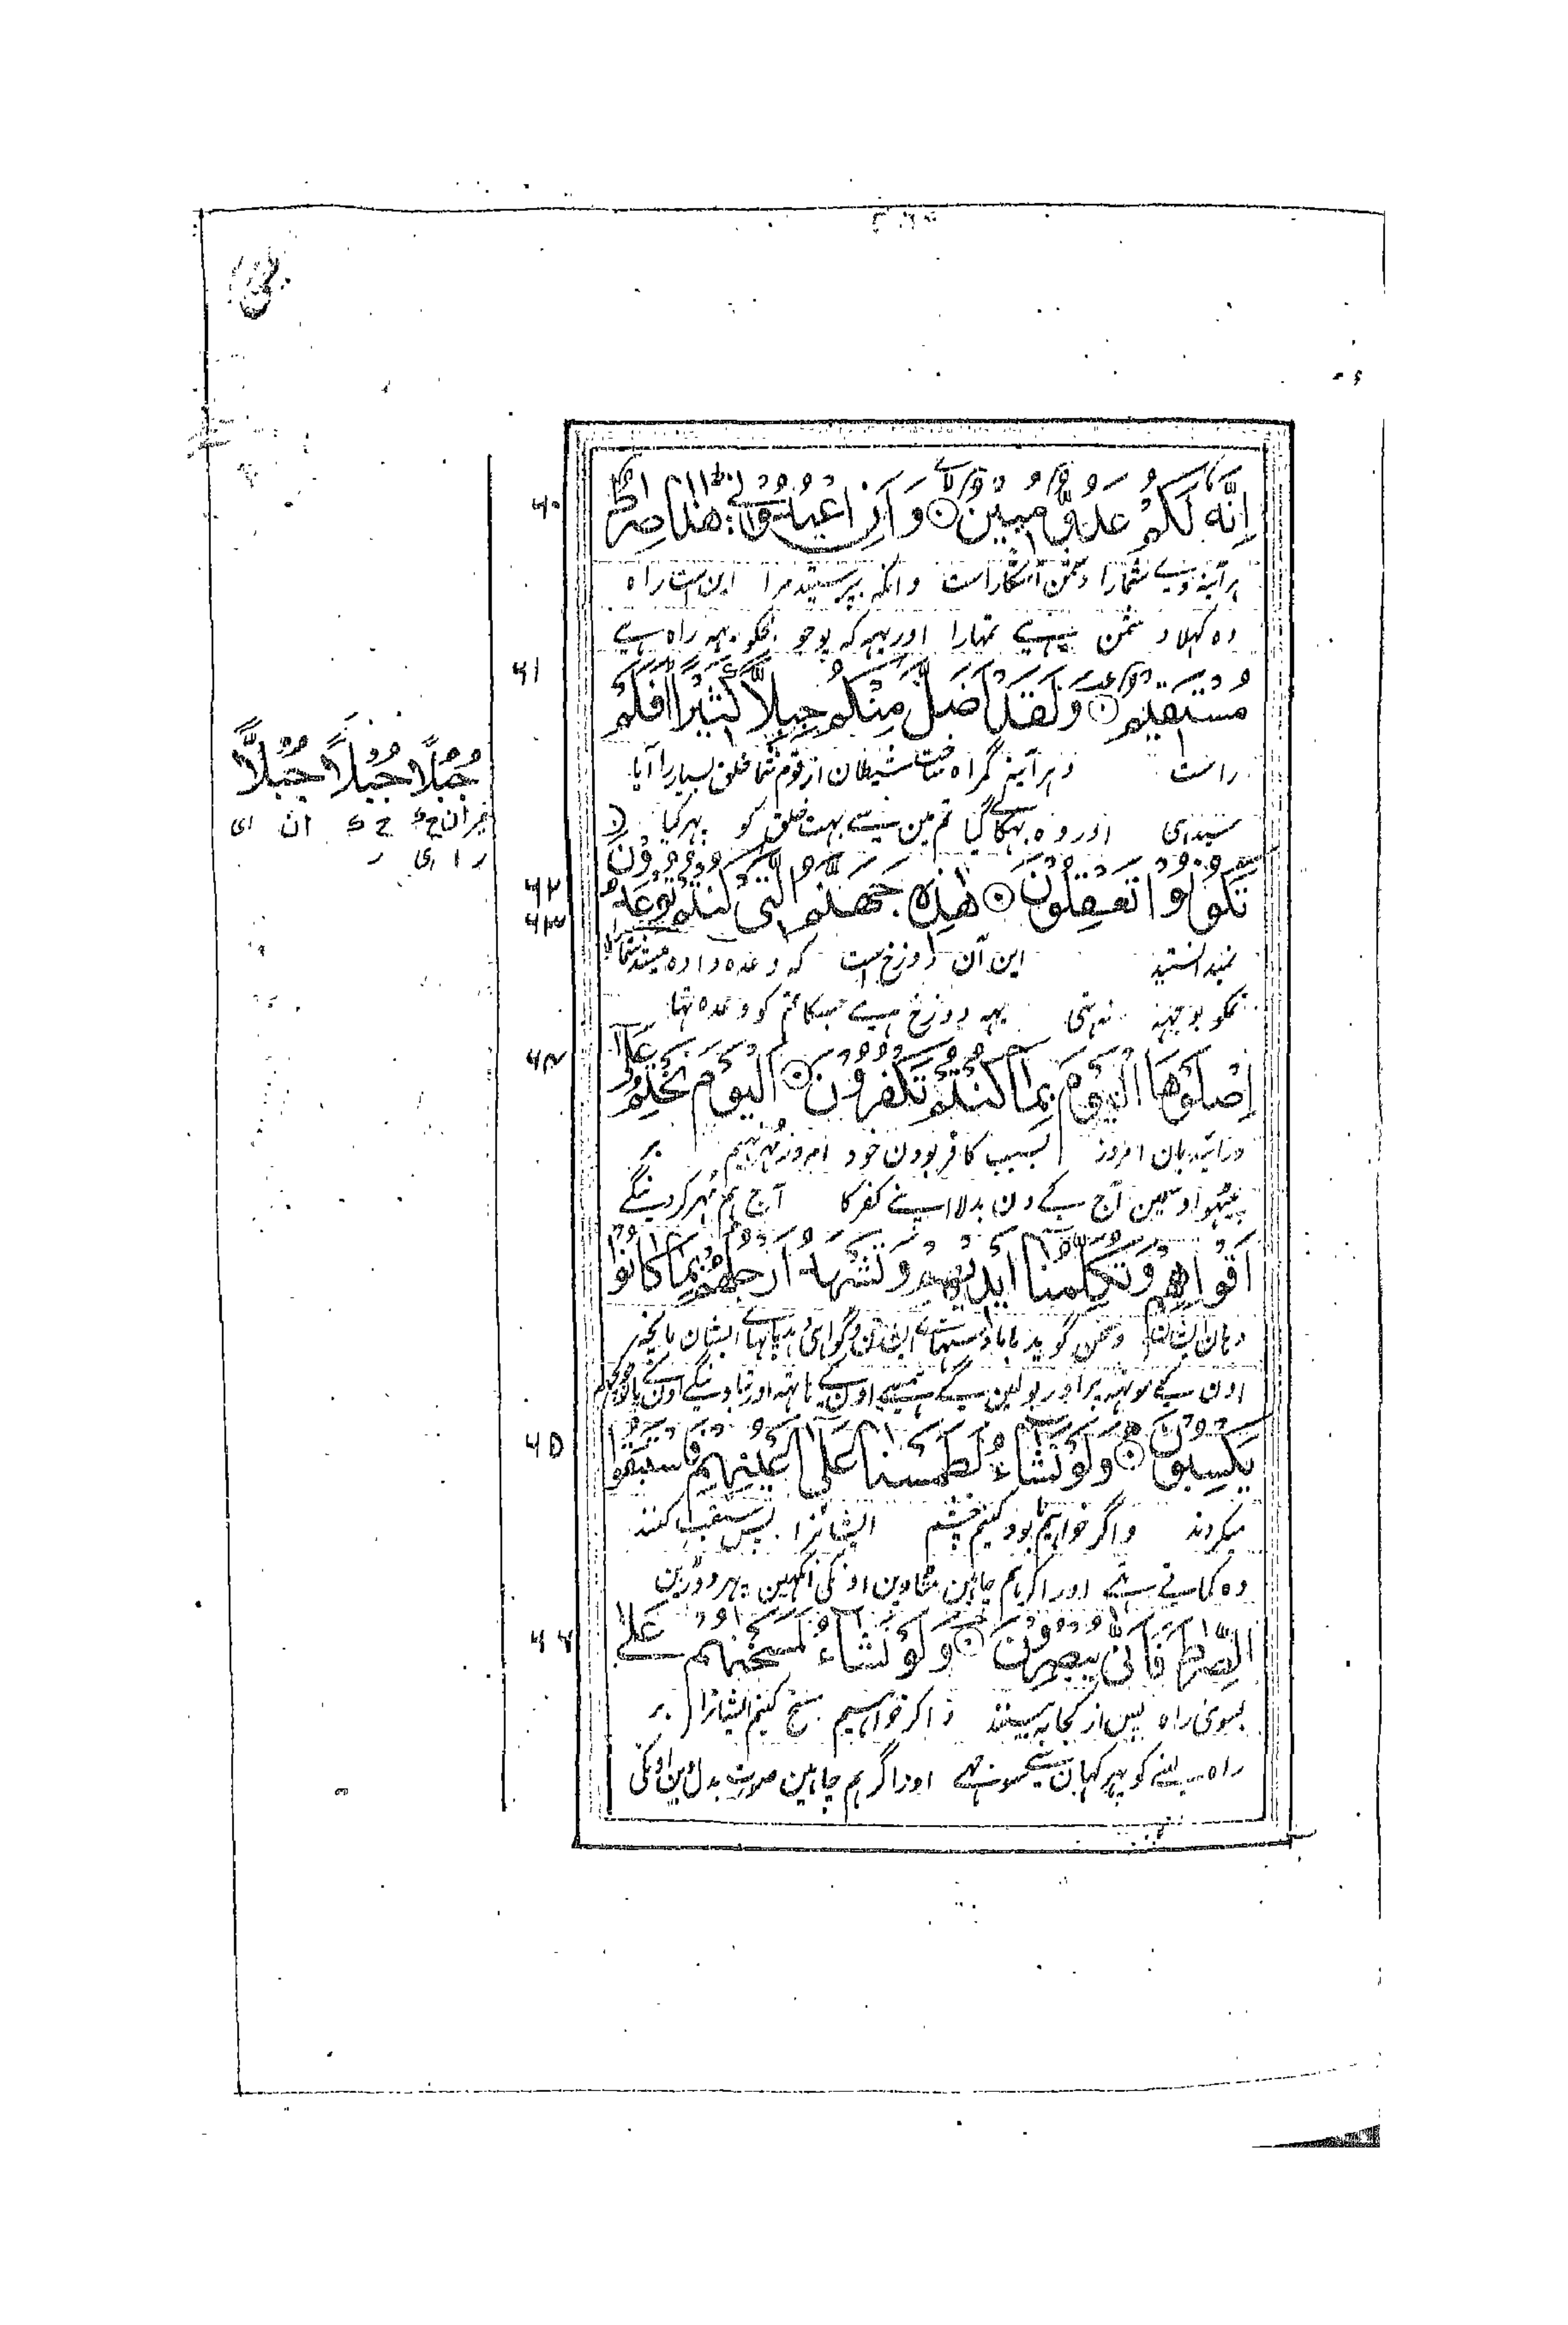 إِنَّهُ لَكُمْ عَدُوٌّ مُبِيْنٌ ○ وَ اَنِ اعْبُدُوْنِيْ هٰذَا صِرَاطٌ
۶۰
ہرآئینہ وے شمارا دشمن آشکار است وانکہ بپرستید مرا این ست راہ
وہ کہلا دشمن ہے تمہارا اور یہہ کہ پوجو مجکو یہہ راہ ہے
مُسْتَقِيْمٌ ○ وَلَقَدْ اَضَلَّ مِنْكُمْ جِبِلًّا كَثِيْرًا اَفَلَمْ
۶۱
راست وہرآئینہ گمراہ ساخت شیطان از قوم شما خلق بسیار را آیا
سیدہی اور وہ بہکا لے گیا تم مین سے بہت خلق کو پہر کیا
جُبُلًا جُبْلًا جُبُلًّا
تَكُوْنُوْا تَعْقِلُوْنَ ○ هٰذِهٖ جَهَنَّمُ الَّتِيْ كُنْتُمْ تُوْعَدُوْنَ ○
۶۲
۶۳
نمیدانستید این آن دوزخ است کہ وعدہ دادہ میشد شمارا
تمکو بوجہہ نہ تہی یہہ دوزخ ہے جسکا تم کو وعدہ تہا
اِصْلَوْهَا الْيَوْمَ بِمَا كُنْتُمْ تَكْفُرُوْنَ ○ اَلْيَوْمَ نَخْتِمُ عَلٰى
۶۴
درآئید بآن امروز بسبب کافر بودن خود امروز مہر نہیم بر
پیٹہو اوسمین آج کے دن بدلا اپنے کفر کا آج ہم مُہر کر دینگے
اَفْوَاهِهِمْ وَتُكَلِّمُنَا اَيْدِيْهِمْ وَتَشْهَدُ اَرْجُلُهُمْ بِمَا كَانُوْا
دہان ایشان وسخن گوید باما دستہائے ایشان وگواہی دہد پاہائے ایشان بانچہ
اون کے مونہہ پر اور بولین گے ہمسے اون کے ہاتہہ اور بتادینگے اون کے پانو جو کچہہ
يَكْسِبُوْنَ ○ وَلَوْ نَشَآءُ لَطَمَسْنَا عَلٰى اَعْيُنِهِمْ فَاسْتَبَقُوا
۶۵
میکردند واگر خواہیم نابود کنیم چشم ایشانرا پس سبقت کنند
وہ کماتے تہے اور اگر ہم چاہین مٹادین اونکی آنکہین پہر دوڑین
الصِّرَاطَ فَاَنّٰى يُبْصِرُوْنَ ○ وَلَوْ نَشَآءُ لَمَسَخْنٰهُمْ عَلٰى
۶۶
بسوی راہ پس از کجا بہ بینند واگر خواہیم مسخ کنیم ایشانرا بر
راہ لینے کو پہر کہان سے سوجہے اور اگر ہم چاہین صورت بدل دین اونکی